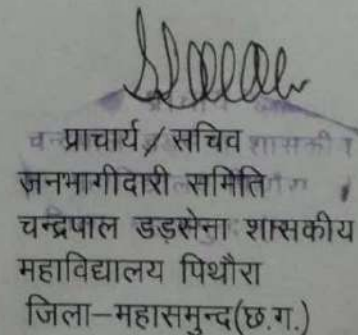 प्राचार्य / सचिव
जनभागीदारी समिति
चन्द्रपाल डड़सेना शासकीय
महाविद्यालय पिथौरा
जिला-महासमुन्द(छ.ग.)